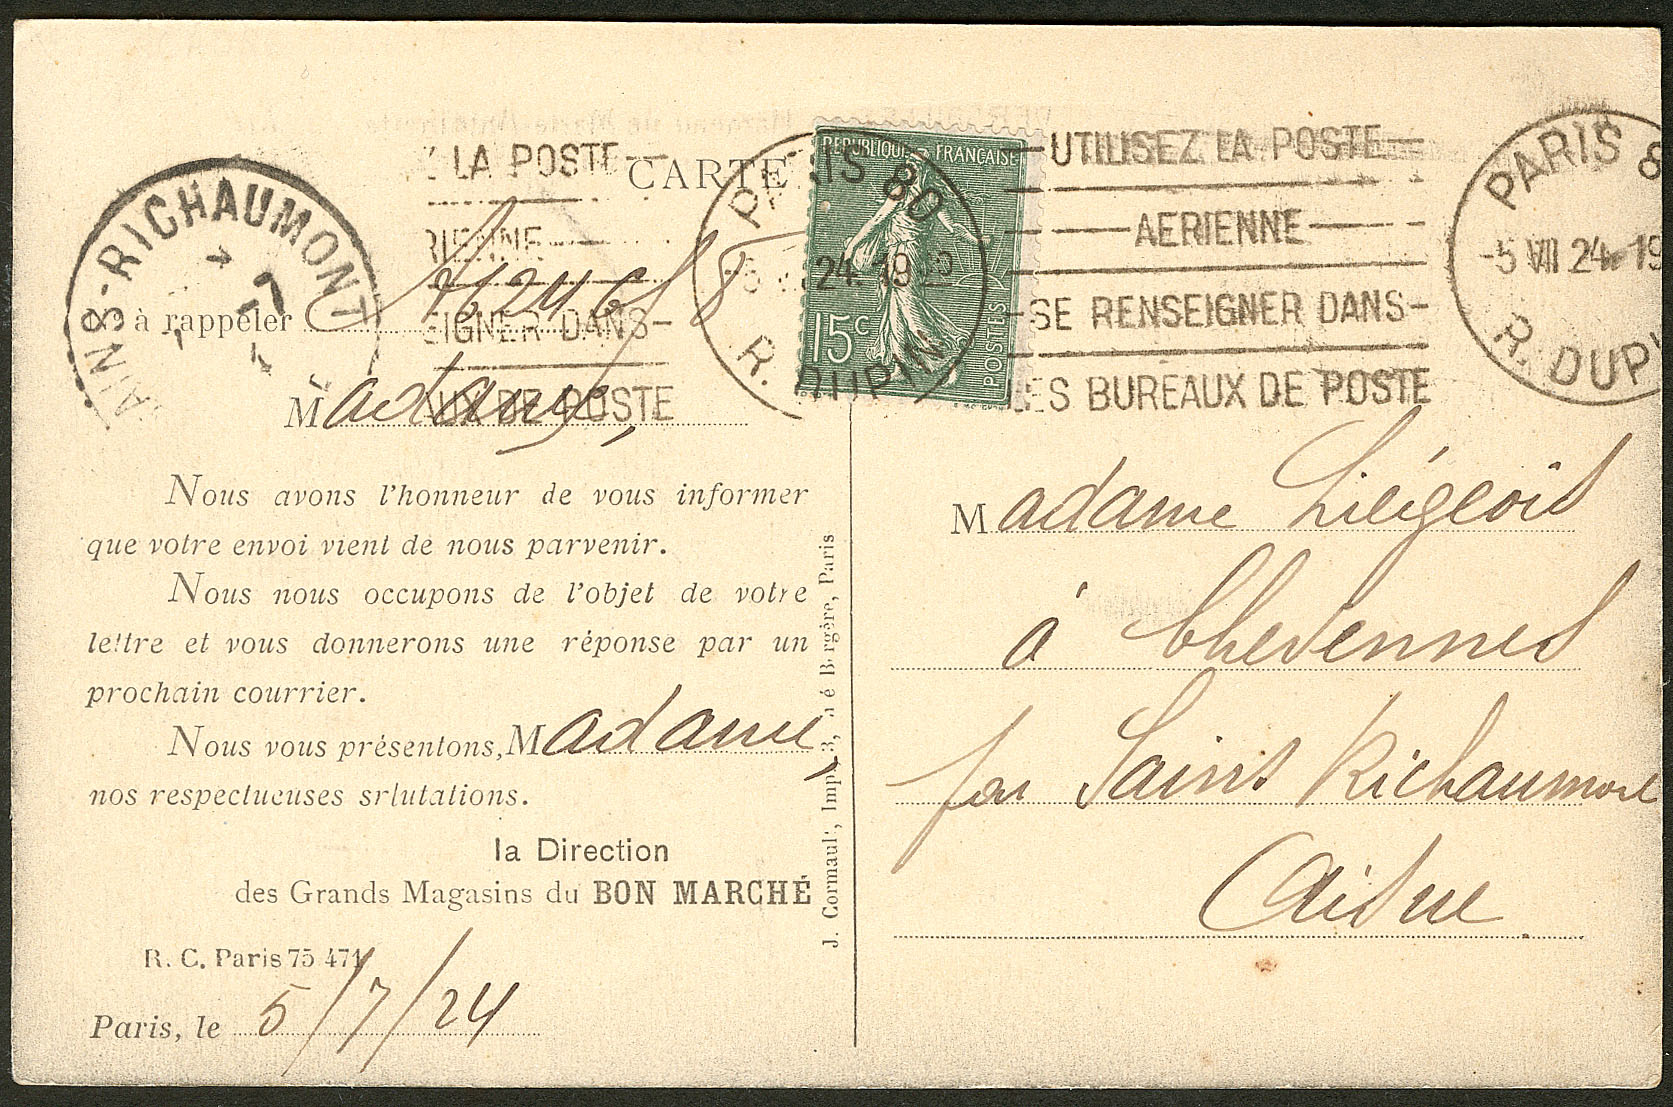 CARTE
SAINS-RICHAUMONT
7
LA POSTE
à rappeler
M adame,
Nous avons l'honneur de vous informer
que votre envoi vient de nous parvenir.
Nous nous occupons de l'objet de votre
lettre et vous donnerons une réponse par un
prochain courrier.
Nous vous présentons, Madame,
nos respectueuses srlutations.
la Direction
des Grands Magasins du BON MARCHÉ
R. C. Paris 75 471
Paris, le 5/7/24
J. Cormault, Imp., 3, Bergère, Paris
REPUBLIQUE FRANÇAISE
15c
POSTES
PARIS 80
R. DUPIN
UTILISEZ LA POSTE
AERIENNE
SE RENSEIGNER DANS
LES BUREAUX DE POSTE
PARIS 8
5 VII 24 19
R. DUPI
Madame Liégeois
à Chevennes
par Sains Richaumont
Aisne